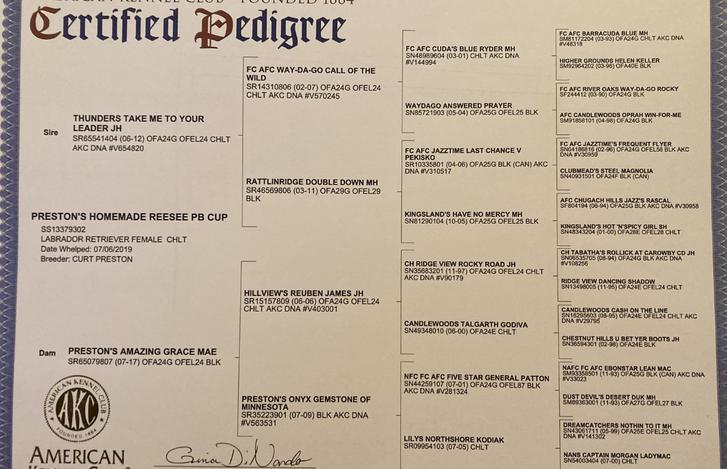 Certified Pedigree
Sire
THUNDERS TAKE ME TO YOUR
LEADER JH
SR65541404 (06-12) OFA24G OFEL24 CHLT
AKC DNA #V654820
PRESTON'S HOMEMADE REESEE PB CUP
SS13379302
LABRADOR RETRIEVER FEMALE CHLT
Date Whelped: 07/06/2019
Breeder: CURT PRESTON
Dam
PRESTON'S AMAZING GRACE MAE
SR65079807 (07-17) OFA24G OFEL24 BLK
AMERICAN KENNEL CLUB
AKC
FOUNDED 1884
AMERICAN
FC AFC WAY-DA-GO CALL OF THE
WILD
SR14310806 (02-07) OFA24G OFEL24
CHLT AKC DNA #V570245
RATTLINRIDGE DOUBLE DOWN MH
SR46569806 (03-11) OFA29G OFEL29
BLK
HILLVIEW'S REUBEN JAMES JH
SR15157809 (06-06) OFA24G OFEL24
CHLT AKC DNA #V403001
PRESTON'S ONYX GEMSTONE OF
MINNESOTA
SR35223901 (07-09) BLK AKC DNA
#V563531
FC AFC CUDA'S BLUE RYDER MH
SN48989604 (03-01) CHLT AKC DNA
#V144994
WAYDAGO ANSWERED PRAYER
SN85721903 (05-04) OFA25G OFEL25 BLK
FC AFC JAZZTIME LAST CHANCE V
PEKISKO
SR10335801 (04-06) OFA25G BLK (CAN) AKC
DNA #V310517
KINGSLAND'S HAVE NO MERCY MH
SN81290104 (10-05) OFA25G OFEL25 BLK
CH RIDGE VIEW ROCKY ROAD JH
SN35683201 (11-97) OFA24G OFEL24 CHLT
AKC DNA #V90179
CANDLEWOODS TALGARTH GODIVA
SN49348010 (06-00) OFA24E CHLT
NFC FC AFC FIVE STAR GENERAL PATTON
SN44259107 (07-01) OFA24G OFEL87 BLK
AKC DNA #V281324
LILYS NORTHSHORE KODIAK
SR09954103 (07-05) CHLT
FC AFC BARRACUDA BLUE MH
SM81172204 (03-93) OFA24G CHLT AKC DNA
#V48318
HIGHER GROUNDS HELEN KELLER
SM92964202 (03-96) OFA40E BLK
FC AFC RIVER OAKS WAY-DA-GO ROCKY
SF244412 (03-90) OFA24G BLK
AFC CANDLEWOODS OPRAH WIN-FOR-ME
SM91858101 (04-98) OFA24G BLK
FC AFC JAZZTIME'S FREQUENT FLYER
SN04186816 (02-96) OFA24G OFEL56 BLK AKC
DNA #V30959
CLUBMEAD'S STEEL MAGNOLIA
SN40931501 OFA24F BLK (CAN)
AFC CHUGACH HILLS JAZZ'S RASCAL
SF804194 (06-94) OFA25G BLK AKC DNA #V30958
KINGSLAND'S HOT 'N'SPICY GIRL SH
SN48343204 (01-00) OFA28E OFEL28 CHLT
CH TABATHA'S ROLLICK AT CAROWBY CD JH
SN06535705 (08-94) OFA24G BLK AKC DNA
#V108256
RIDGE VIEW DANCING SHADOW
SN13498005 (11-95) OFA24E OFEL24 CHLT
CANDLEWOODS CASH ON THE LINE
SN16295603 (08-95) OFA24E OFEL24 CHLT AKC
DNA #V29795
CHESTNUT HILLS U BET YER BOOTS JH
SN36594301 (02-98) OFA24E BLK
NAFC FC AFC EBONSTAR LEAN MAC
SM93358501 (11-93) OFA25G BLK (CAN) AKC DNA
#V33023
DUST DEVIL'S DESERT DUK MH
SM89363001 (11-93) OFA27G OFEL27 BLK
DREAMCATCHERS NOTHIN TO IT MH
SN43061711 (05-99) OFA25E OFEL25 CHLT AKC
DNA #V141302
NANS CAPTAIN MORGAN LADYMAC
SN54003404 (07-00) CHLT